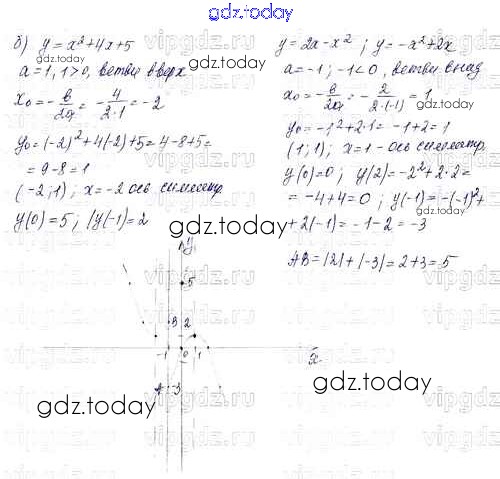 gdz.today
б) y = x² + 4x + 5
a = 1, 1 > 0, ветви вверх
x₀ = -в/2a = -4/2·1 = -2
y₀ = (-2)² + 4(-2) + 5 = 4 - 8 + 5 =
= 9 - 8 = 1
(-2; 1); x = -2 ось симметр
y(0) = 5; y(-1) = 2
y = 2x - x²; y = -x² + 2x
a = -1; -1 < 0, ветви вниз
x₀ = -в/2a = -2/2·(-1) = 1
y₀ = -1² + 2·1 = -1 + 2 = 1
(1; 1); x = 1 - ось симметр
y(0) = 0; y(2) = -2² + 2·2 =
= -4 + 4 = 0; y(-1) = -(-1)² +
+ 2(-1) = -1 - 2 = -3
AB = |2| + |-3| = 2 + 3 = 5
y
5
B 2
-1 0 1 x
A -3
gdz.today
gdz.today
gdz.today
gdz.today
gdz.today
gdz.today
gdz.today
vipgdz.ru